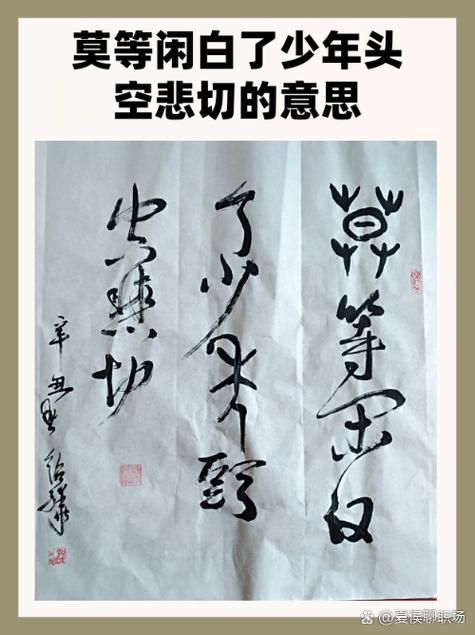 莫等闲白了少年头
空悲切的意思
莫等闲白
了少年頭
空悲切
辛丑
@夏侯聊职场